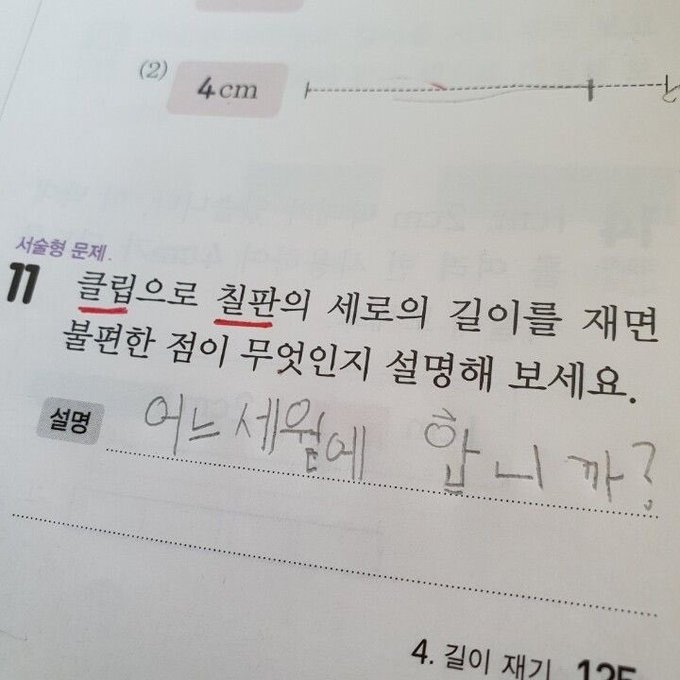 (2) 4cm
서술형 문제.
11 클립으로 칠판의 세로의 길이를 재면
불편한 점이 무엇인지 설명해 보세요.
설명 어느세월에 합니까?
4. 길이 재기 125